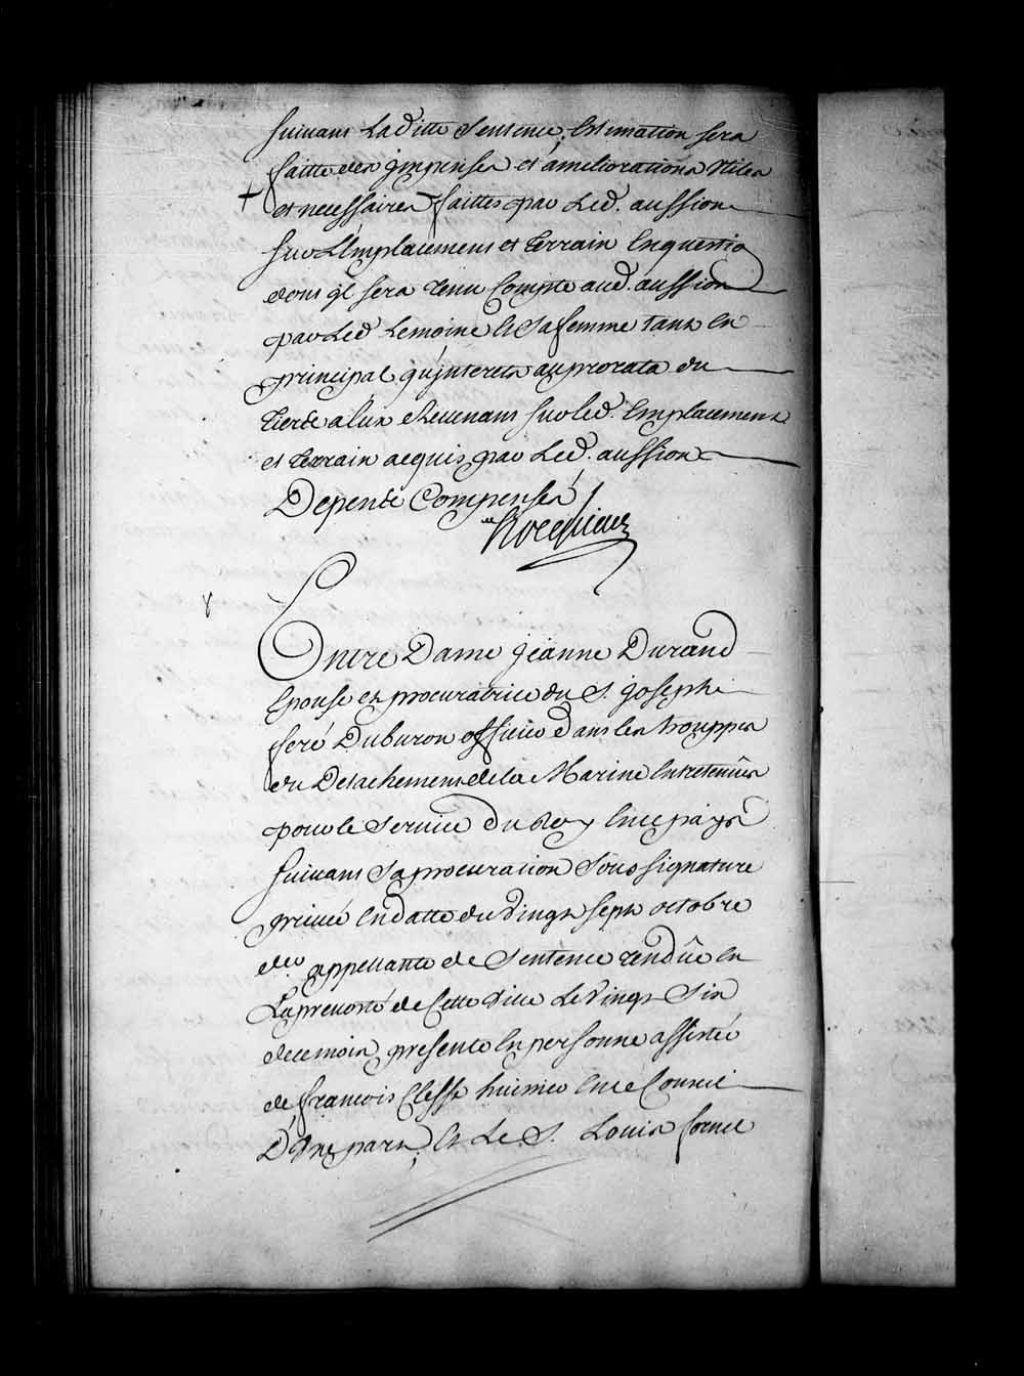 suivant Laditte Sentence, Estimation sera
faitte des jmpenses et ameliorations Utiles
et necessaires faittes par Led. aussion
sur L'Emplacement et terrain En question
dont jl sera tenu Compte aud. aussion
par Led Lemoine et Sa femme tant En
principal qu'jnterets au prorata du
tiers a Eux Revenant sur led. Emplacement
et terrain acquis par Led. aussion
Depens Compensés
Hocquart
Entre Dame jeanne Durand
Epouse et procuratrice du S. joseph
feré Duburon officier dans les trouppes
du Detachement de la Marine Entretenües
pour le Service du Roy En ce païs
suivant Sa procuration Sous signature
privée En datte du Vingt sept octobre
der appellante de Sentence rendüe En
La prevosté de Cette Ville Le Vingt Six
de ce mois, presente En personne assistée
de françois Clesse huissier En ce Conseil
D'Une part, Et Le S. Louis fornel